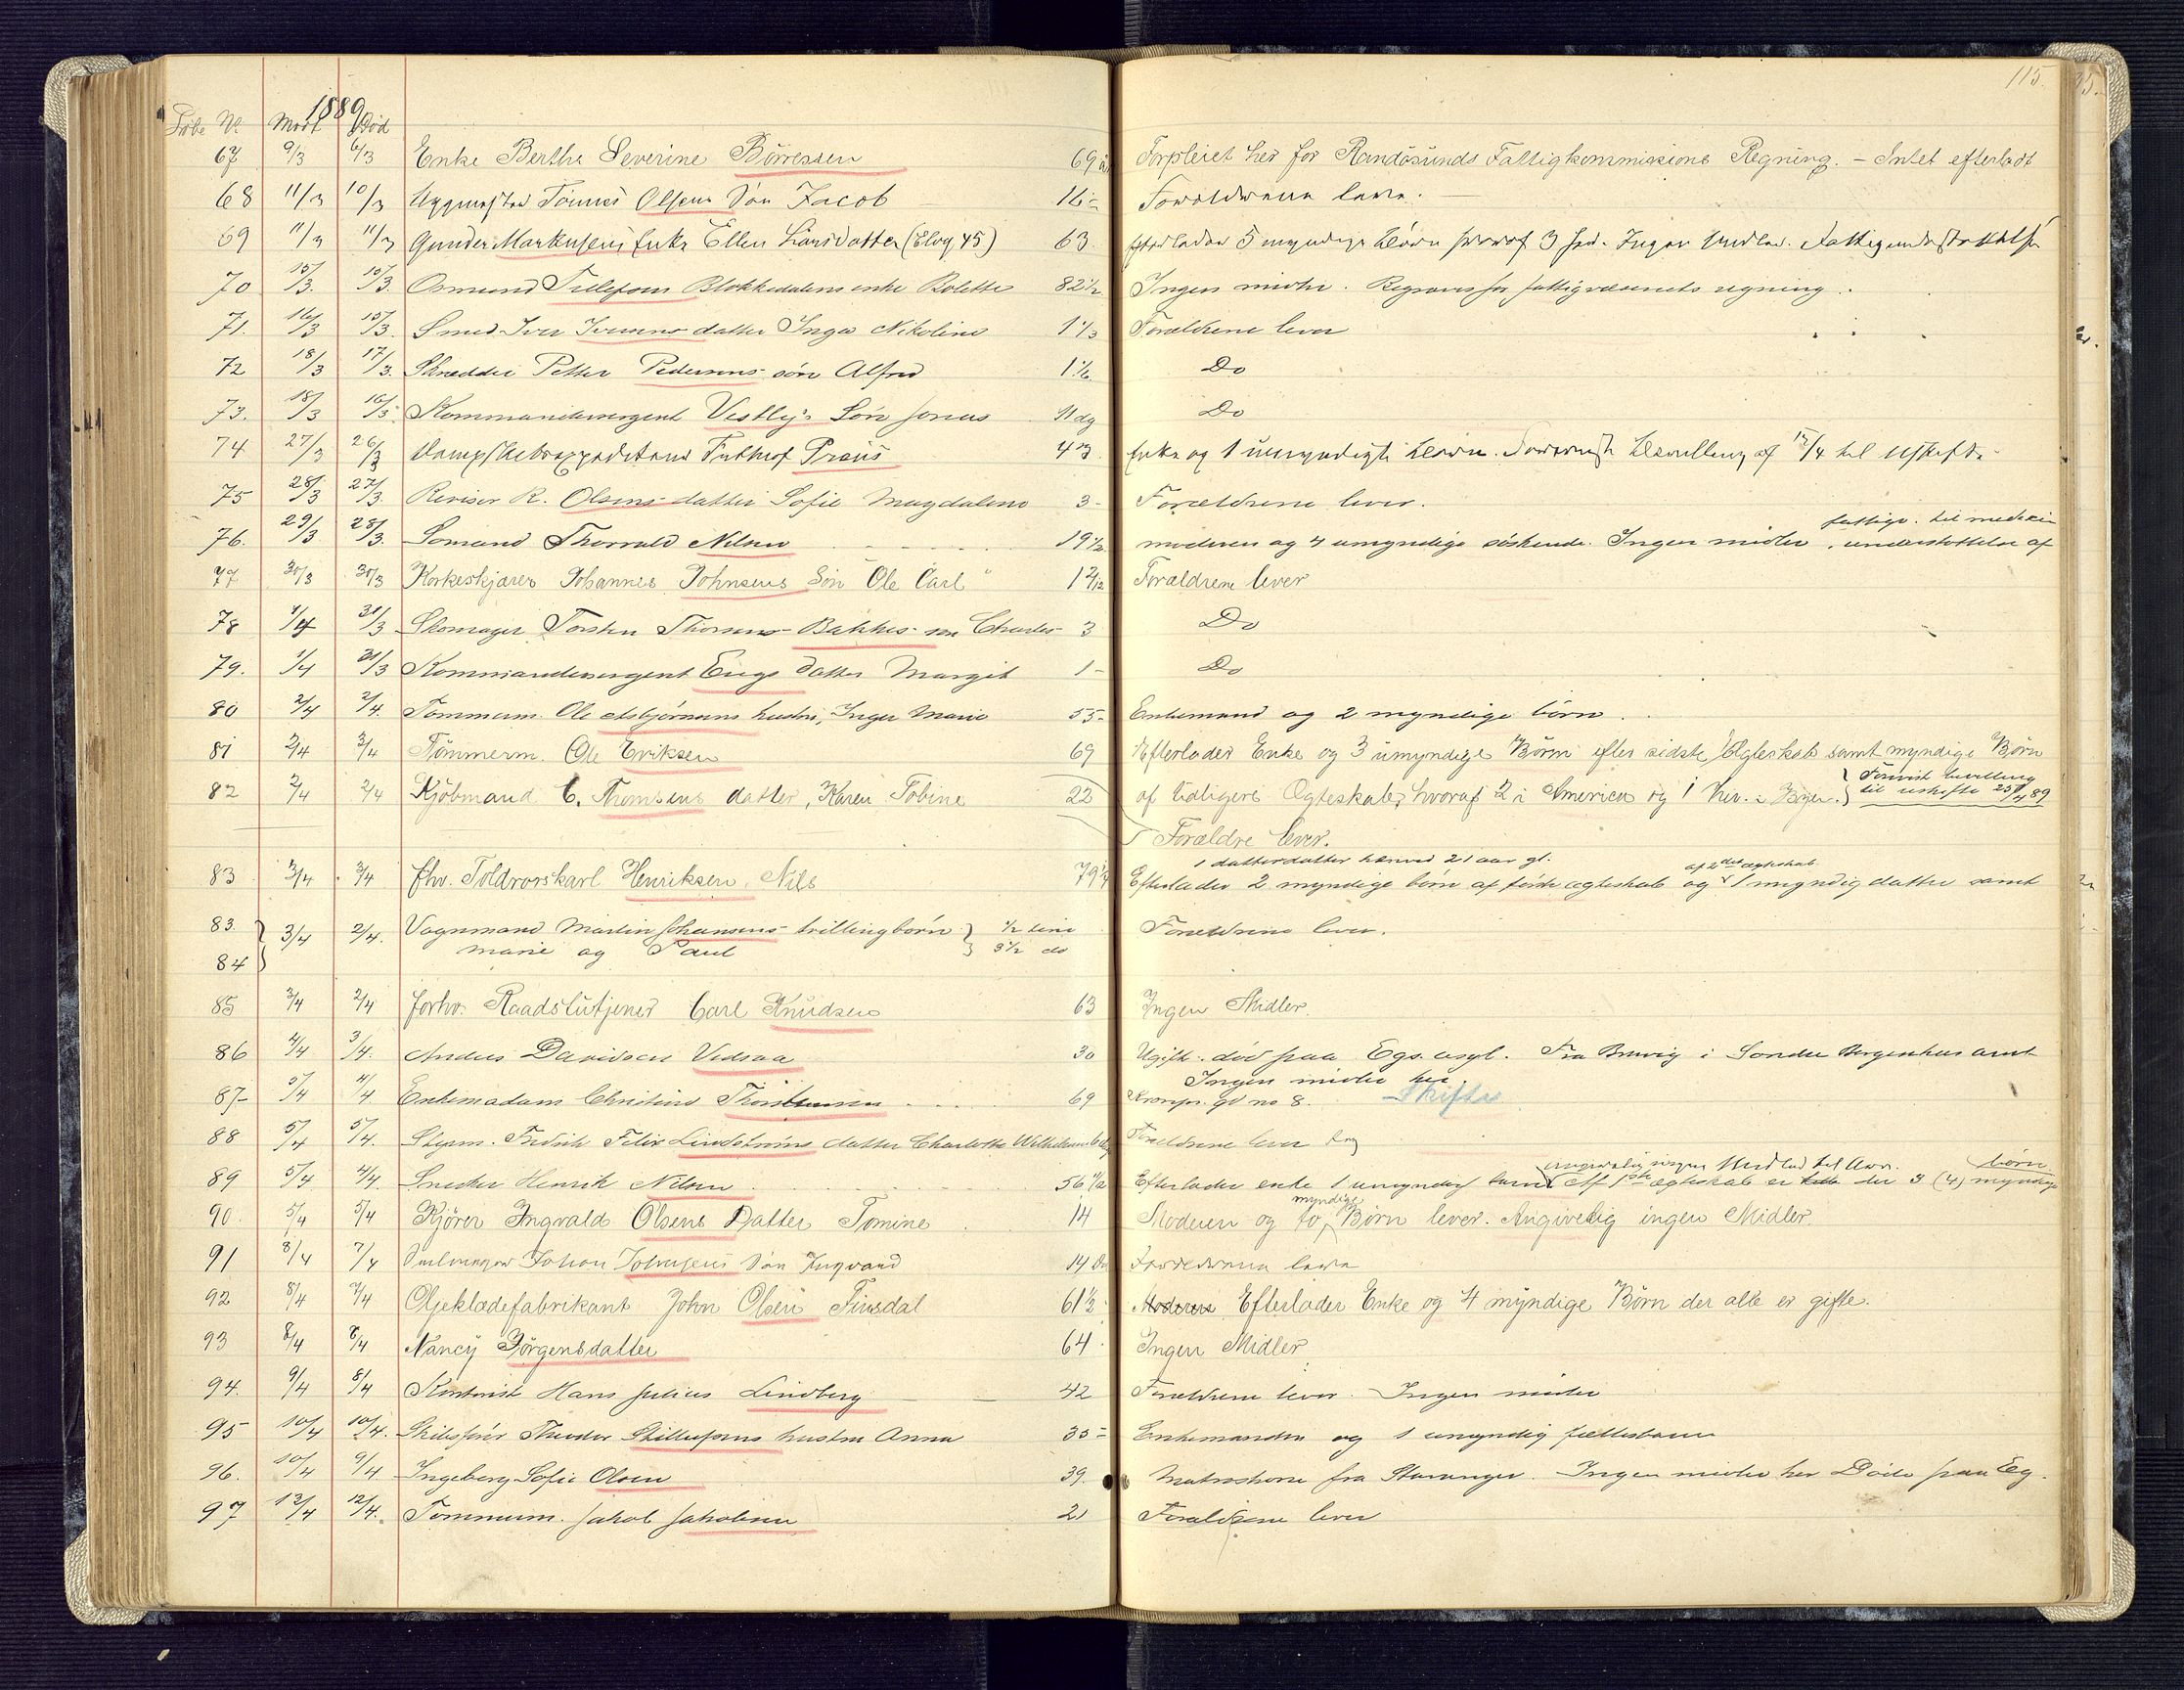 115.
1889
Løbe No. Modt Død
67 9/3 6/3 Enke Berthe Severine Börressen 69 Forpleiet her for Randøsunds Fattigkommissions Regning. – Intet efterladt
68 11/3 10/3 Tönnes Olsens Søn Jacob 16 – Forældrene leve.
69 11/3 11/3 Gunder Markusens Enke Ellen Larsdatter (Elvg 45) 63 Efterlader 5 myndige Børn hvoraf 3 Ingen Midler. Fattigunderstøttelse
70 15/3. 10/3. Osmund Tellefsens Blokkedalens enke Bolette 82 1/2 Ingen midler. Begraves for fattigvæsenets regning.
71. 16/3 15/3. Smed Iver Iversens datter Inga Nikoline 1 1/3 Forældrene lever
72 18/3 17/3. Skrædder Petter Pedersens søn Alfred 1 1/6 Do
73. 18/3 16/3 Kommandersergent Vestly's Søn Jonas 11 dg Do
74 27/3 26/3 Frithiof Preüs 43 Enke og 1 umyndigt Barn. Bevilling af 13/4 til Uskifte.
75 28/3 27/3. Revisor R. Olsens datter Sofie Magdalene 3 – Forældrene lever.
fattige. til medicin
76. 29/3 28/3. Sømand Thorvald Nilsen 19 1/2 moderen og 4 umyndige søskende. Ingen midler. understøttelse af
77 30/3 30/3 Korkeskjærer Johannes Johnsens Søn "Ole Carl" 1 2/12 Forældrene lever
78 1/4 31/3 Skomager Torsten Thorsens Bakkes søn Charles 3 Do
79. 1/4 31/3 Kommandersergent Engs datter Margit 1 – Do
80 2/4 2/4. Tømmerm. Ole Asbjørnsens hustru, Inger Marie 55 – Enkemand og 2 myndige børn.
81 2/4 2/4 Tömmerm. Ole Eriksen 69 Efterlader Enke og 3 umyndige Børn efter sidste Ægteskab samt myndige Børn
82 2/4 2/4 Kjöbmand C. Thomsens datter, Karen Tobine 22 af tidligere Ægteskab, hvoraf 2 i America og 1 her i Byen. } Forevist bevilling
til uskifte 25/4 89
Forældre lever.
1 datterdatter herved 21 aar gl. af 2det ægteskab
83 3/4 3/4 fhv. Toldrorskarl Henriksen, Nils 79 1/2 Efterlader 2 myndige börn af første ægteskab og 1 myndig datter samt
83. } 3/4 2/4. Vognmand Martin Johansens trillingbørn } 1/2 time Forældrene lever.
84 Marie og Paul 3 1/2 do
85 3/4 2/4 forhv. Raadstutjener Carl Knudsen 63 Ingen Midler.
86 4/4 3/4. Anders Davidsen Vedraa 30 Ugift. død paa Egs asyl. Fra Bruvig i Søndre Bergenhus amt
Ingen midler her.
87 – 5/4 4/4 Enkemadam Christine Thorstensen 69 Kronpr. gd no 8. Skifte
88 5/4 5/4. Styrm. Fredrik Felix Lindstrøms datter Charlotte Wilhelmine Forældrene lever
angivelig ingen Midler børn
89 5/4 4/4. Snedker Henrik Nilsen 56 1/2 Efterlader enke 1 umyndig barn Af 1ste ægteskab er der 3 (4) myndige
myndige
90. 5/4 5/4 Kjörer Ingvald Olsens Datter Tomine 14 Moderen og to Börn lever. Angivelig ingen Midler.
91 8/4 7/4 Johan Johnsens Søn Ingvard 14 Forældrene leve
92 8/4 7/4 Oljeklædefabrikant John Olsen Finsdal 61 1/3 Moderen Efterlader Enke og 4 myndige Børn der alle er gifte.
93 8/4 8/4 Nancy Jörgensdatter 64 Ingen Midler
94. 9/4 8/4 Kontorist Hans Julius Lindberg 42 Forældrene lever. Ingen midler
95 10/4 10/4. Skibsfører Theodor hustru Anna 35 – Enkemanden og 1 umyndig fællesbarn
96. 10/4 9/4 Ingeborg Sofie Olsen 39. fra Stavanger. Ingen midler her Døde paa Eg.
97 13/4 12/4. Tømmerm. Jakob Jakobsen 21 Forældrene lever